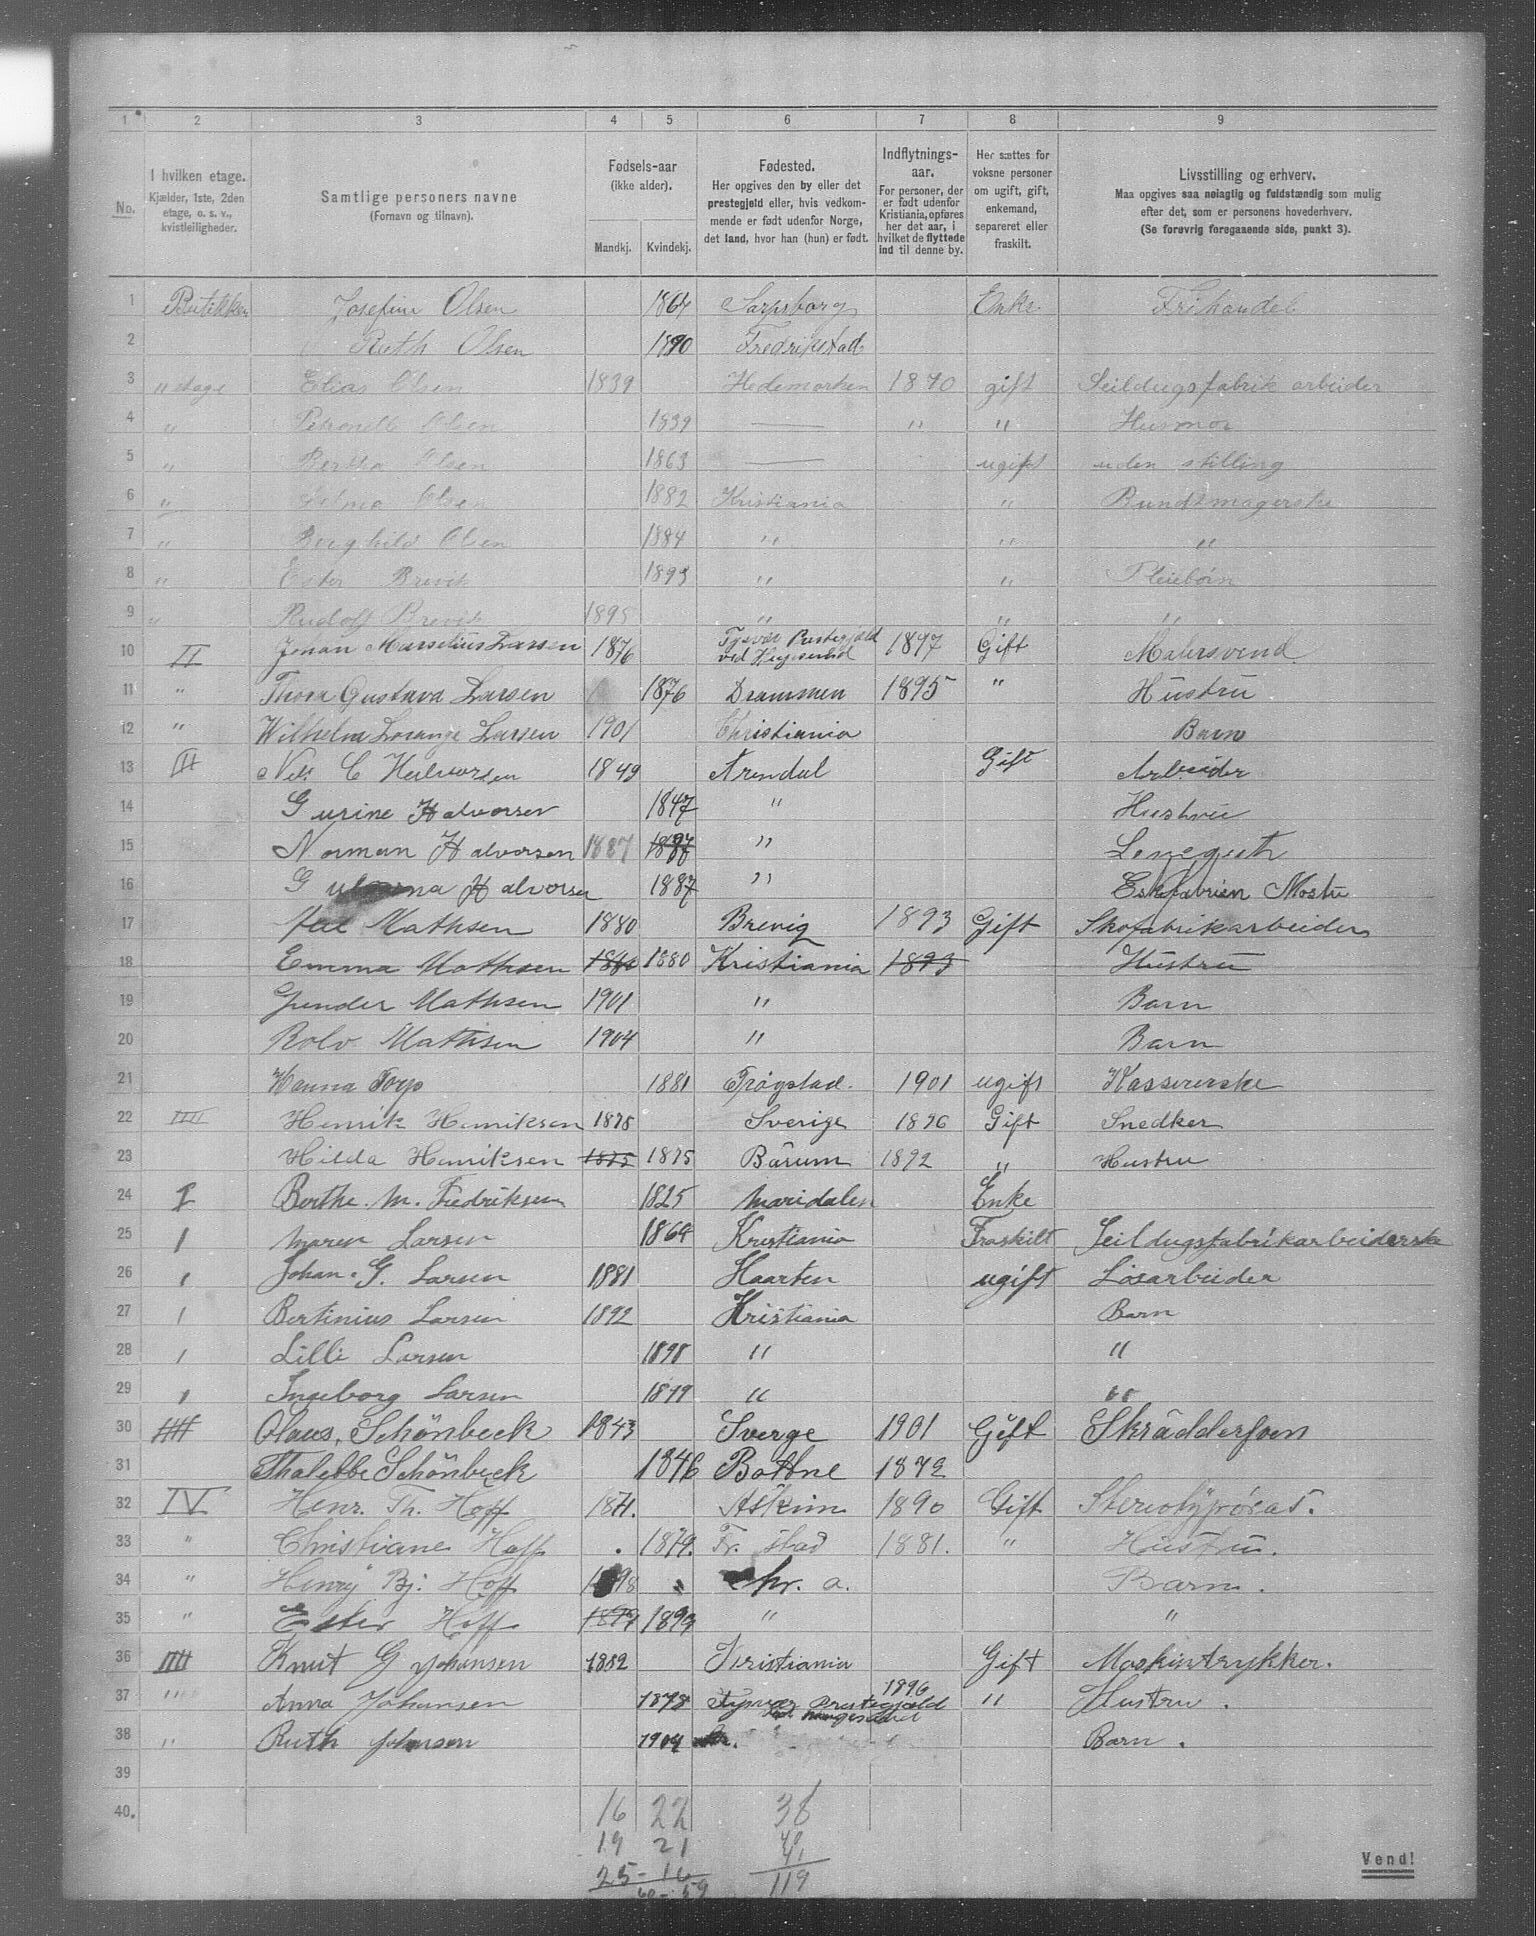 1 2 3 4 5 6 7 8 9
No.
I hvilken etage.
Kjælder, 1ste, 2den
etage, o. s. v.,
kvistleiligheder.
Samtlige personers navne
(Fornavn og tilnavn).
Fødsels-aar
(ikke alder).
Mandkj. Kvindekj.
Fødested.
Her opgives den by eller det
prestegjeld eller, hvis vedkom-
mende er født udenfor Norge,
det land, hvor han (hun) er født.
Indflytnings-
aar.
For personer, der
er født udenfor
Kristiania, opføres
her det aar, i
hvilket de flyttede
ind til denne by.
Her sættes for
voksne personer
om ugift, gift,
enkemand,
separeret eller
fraskilt.
Livsstilling og erhverv.
Maa opgives saa nøiagtig og fuldstændig som mulig
efter det, som er personens hovederhverv.
(Se forøvrig foregaaende side, punkt 3).
1 Butikken Josefine Olsen 1864 Sarpsborg Enke Frihandel
2 Ruth Olsen 1890 Fredrikstad
3 " etage Elias Olsen 1839 Hedemarken 1870 gift Seildugsfabrik arbeider
4 " Petronelle Olsen 1839 — " " Husmor
5 " Bertha Olsen 1863 — ugift uden stilling
6 " Olsen 1882 Kristiania " Bundtmagerske
7 " Borghild Olsen 1884 " " "
8 " Ester Brevik 1893 " " Pleiebørn
9 " Rudolf Brevik 1895 " " "
10 II Johan Marselius Larsen 1876 Tysvær Prestegjæld 1897 Gift Malersvend
ved Haugesund
11 " Thora Gustava Larsen 1876 Drammen 1895 " Hustru
12 " Wilhelm Larsen 1901 Christiania Barn
13 III Nils C Halvorsen 1849 Arendal Gift Arbeider
14 Gurine Halvorsen 1847 " Hustru
15 Norman Halvorsen 1887 "
16 Halvorsen 1887 "
17 Mathsen 1880 Brevig 1893 Gift Skofabrikarbeider
18 Emma Mathsen 1880 1880 Kristiania 1893 Hustru
19 Gunder Mathsen 1901 " Barn
20 Rolv Mathsen 1904 " Barn
21 Hanna Torp 1881 Trøgstad. 1901 ugift Kassererske
22 IIII Henrik Henriksen 1875 Sverige 1896 Gift Snedker
23 Hilda Henriksen 1875 1875 Bærum 1892 " Hustru
24 I Berthe M. Fredriksen 1825 Maridalen Enke
25 1 Maren Larsen 1864 Kristiania Fraskilt Seildugsfabrikarbeiderske
26 1 Johan G. Larsen 1881 Haarten ugift Løsarbeider
27 1 Bertinius Larsen 1892 Kristiania Barn
28 1 Lilli Larsen 1898 " "
29 1 Ingeborg Larsen 1899 " "
30 Olaus Schönbeck 1843 Sverge 1901 Gift
31 Thalette Schönbeck 1846 Bottne 1872
32 IV Henr. Th. Hoff 1871. Askim 1890 Gift
33 " Christiane Hoff . 1879. Fr. stad 1881. " Hustru.
34 " Henry Bj. Hoff 1898 Chr. a. Barn.
35 " Ester Hoff 1899 1899 " "
36 IIII Knut G Johansen 1882 Kristiania Gift Maskintrykker.
37 """" Anna Johansen 1878 Tysvær Prestegjæld 1896 " Hustru.
ved Haugesund
38 " Ruth Johansen 1904 Barn.
39
40. 16 22 38
19 21 40
25 - 16 41
60 - 59 119
Vend!